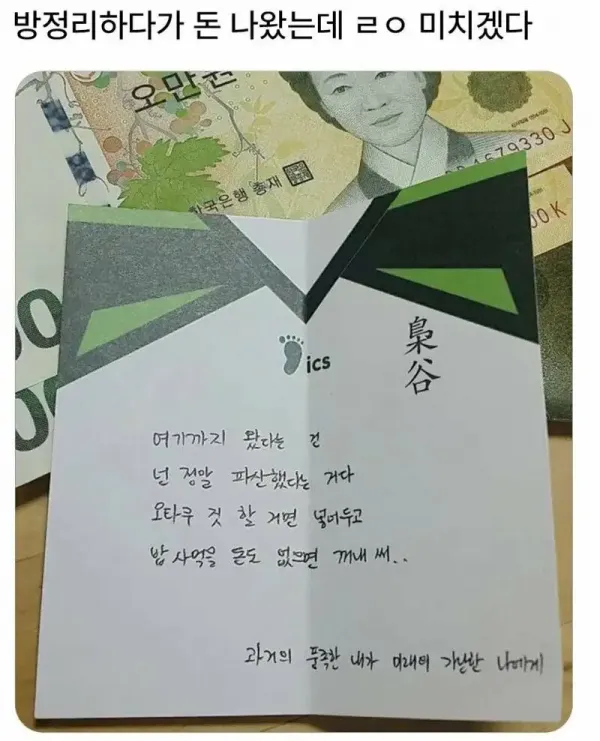 방정리하다가 돈 나왔는데 ㄹㅇ 미치겠다
오만원
한국은행 총재
1679330 J
00K
00
00
ics
梟
谷
여기까지 왔다는 건
넌 정말 파산했다는 거다
오타쿠 것 할 거면 넣어두고
밥 사먹을 돈도 없으면 꺼내 써..
과거의 풍족한 내가 미래의 가난한 나에게